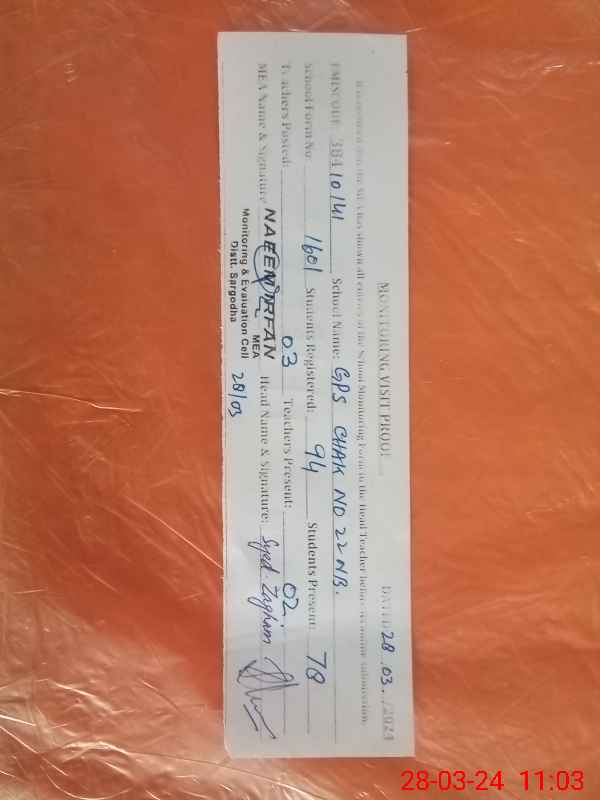 MONITORING VISIT PROOF DATED 28 .03. /2024
It is certified that the MEA has shown all entries of the School Monitoring Form to the Head Teacher before its online submission.
EMISCODE: 38410141 School Name: GPS CHAK NO 22 NB.
School Form No: 1601 Students Registered: 94 Students Present: 78
Teachers Posted: 03 Teachers Present: 02.
MEA Name & Signature NAEEM IRFAN Head Name & Signature: Syed Zagham
MEA
Monitoring & Evaluation Cell
Distt. Sargodha
28/03
28-03-24 11:03